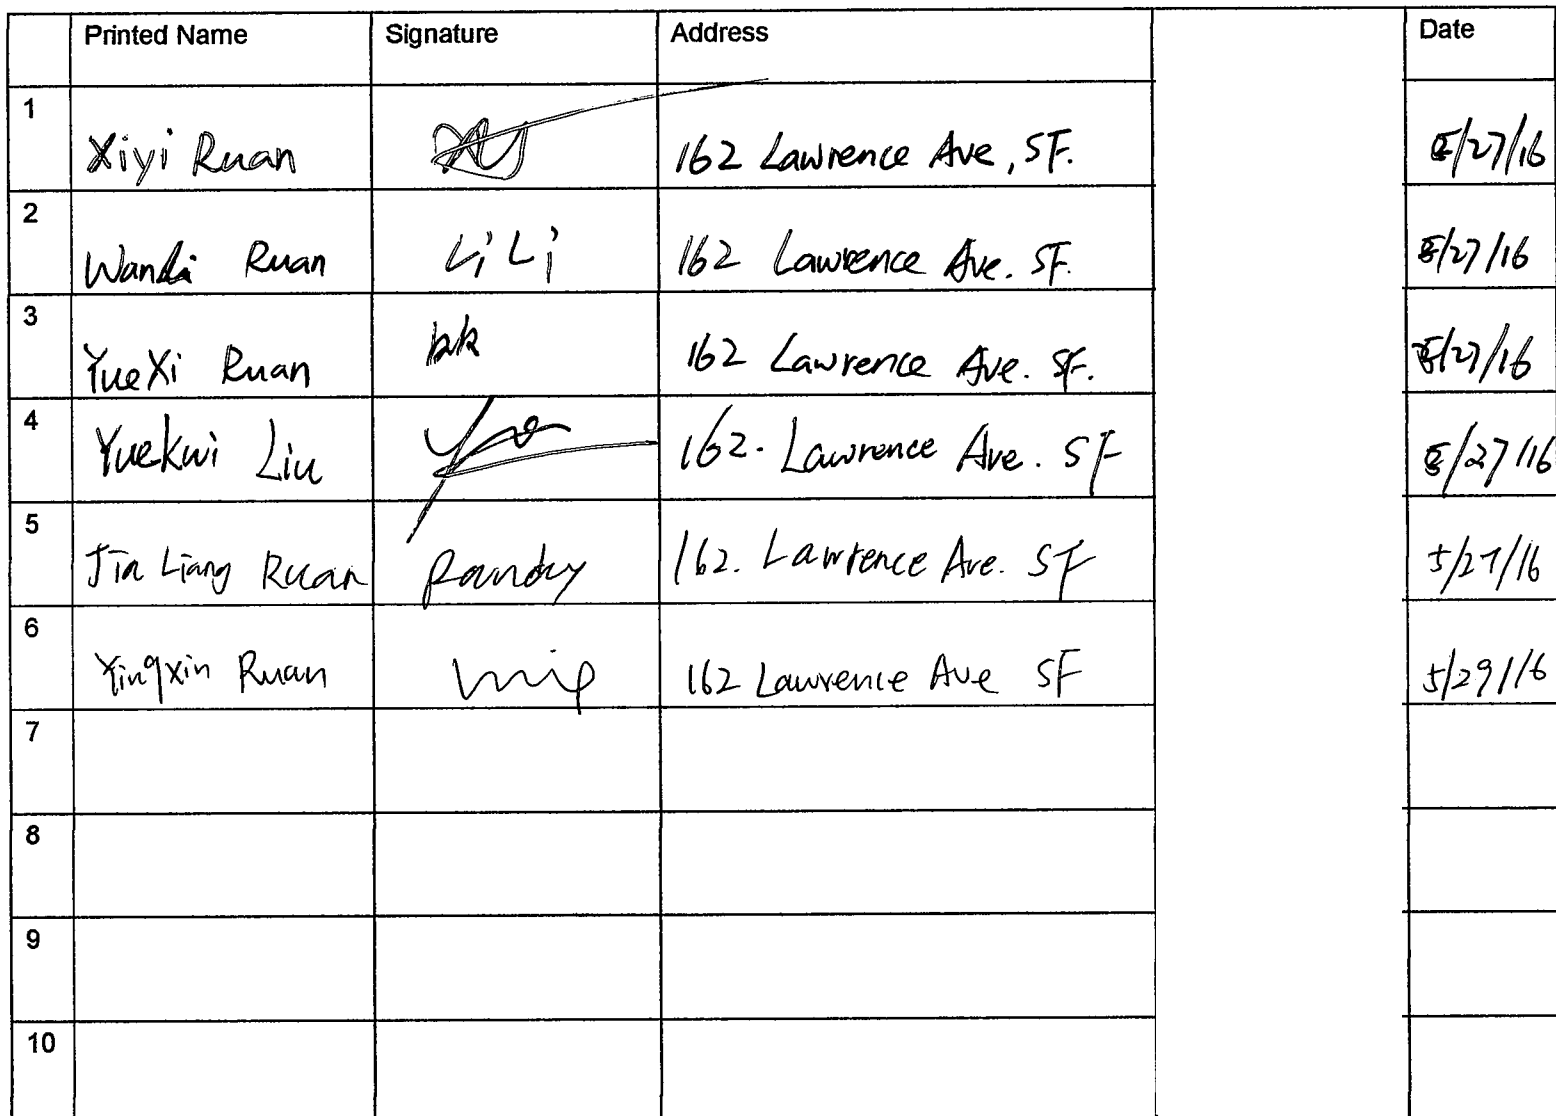 Printed Name Signature Address Date
1 Xiyi Ruan 162 Lawrence Ave, SF. 5/27/16
2 Ruan Li Li 162 Lawrence Ave. SF. 5/27/16
3 YueXi Ruan kk 162 Lawrence Ave. SF. 5/27/16
4 Yuekui Liu 162. Lawrence Ave. SF 5/27/16
5 Jia Liang Ruan Randy 162. Lawrence Ave. SF 5/27/16
6 Yingxin Ruan 162 Lawrence Ave SF 5/29/16
7
8
9
10